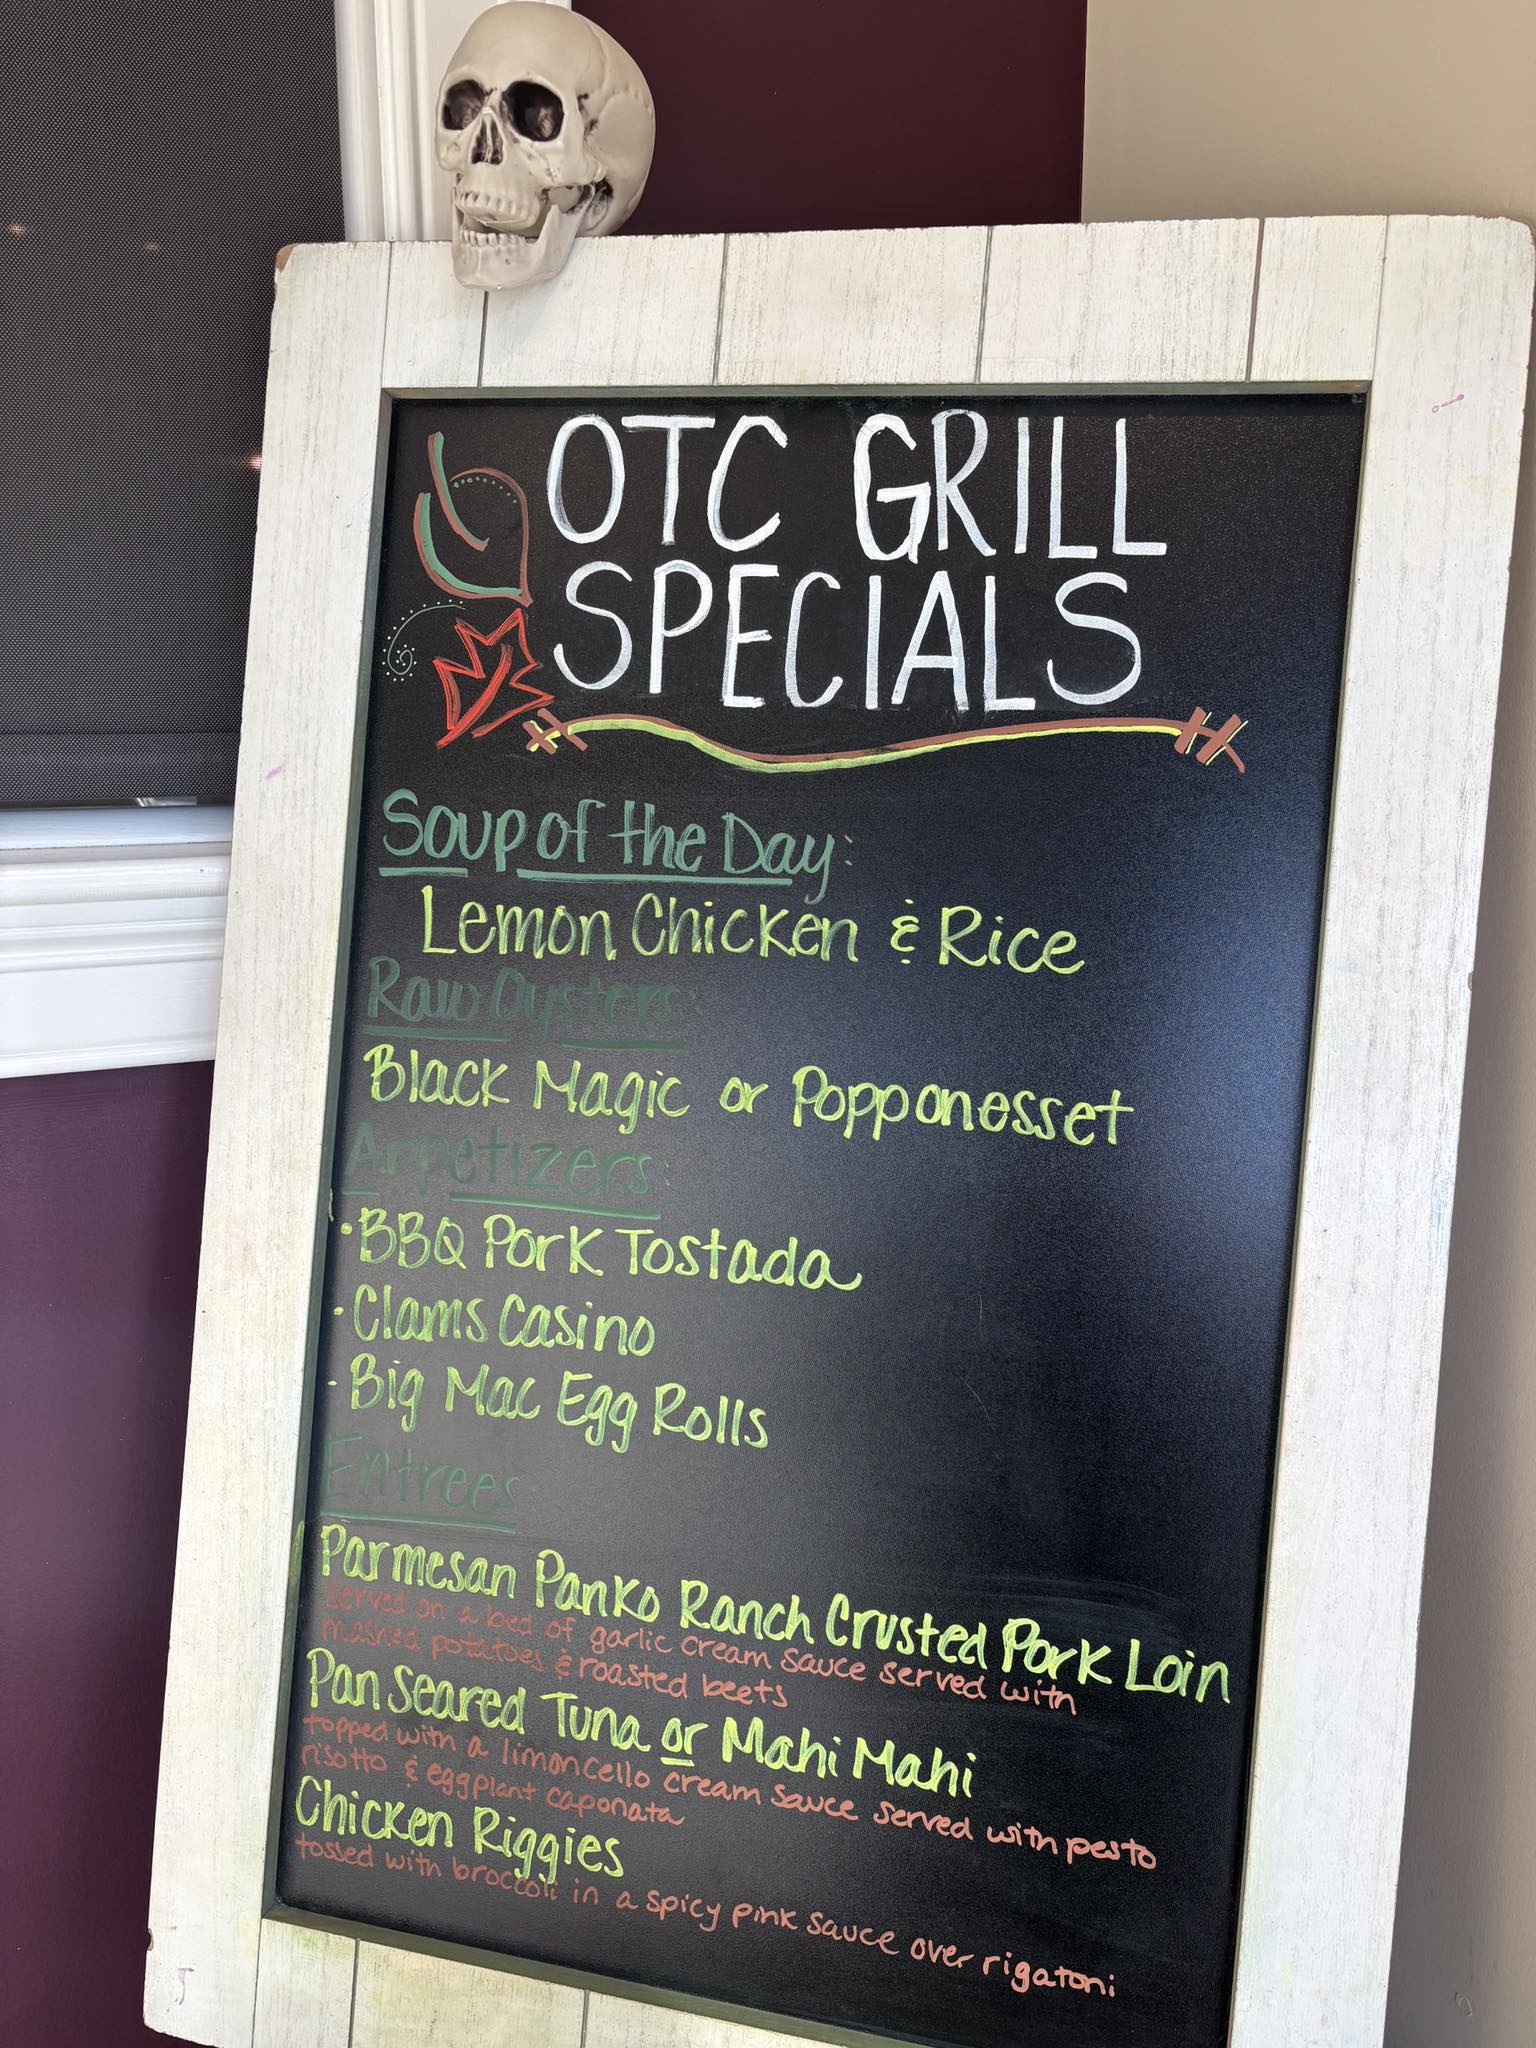 OTC GRILL
SPECIALS
Soup of the Day:
Lemon Chicken & Rice
Raw Oysters:
Black Magic or Popponesset
Appetizers:
• BBQ Pork Tostada
• Clams Casino
• Big Mac Egg Rolls
Entrees
Parmesan Panko Ranch Crusted Pork Loin
served on a bed of garlic cream sauce served with
mashed potatoes & roasted beets
Pan Seared Tuna or Mahi Mahi
topped with a limoncello cream sauce served with pesto
risotto & eggplant caponata
Chicken Riggies
tossed with broccoli in a spicy pink sauce over rigatoni